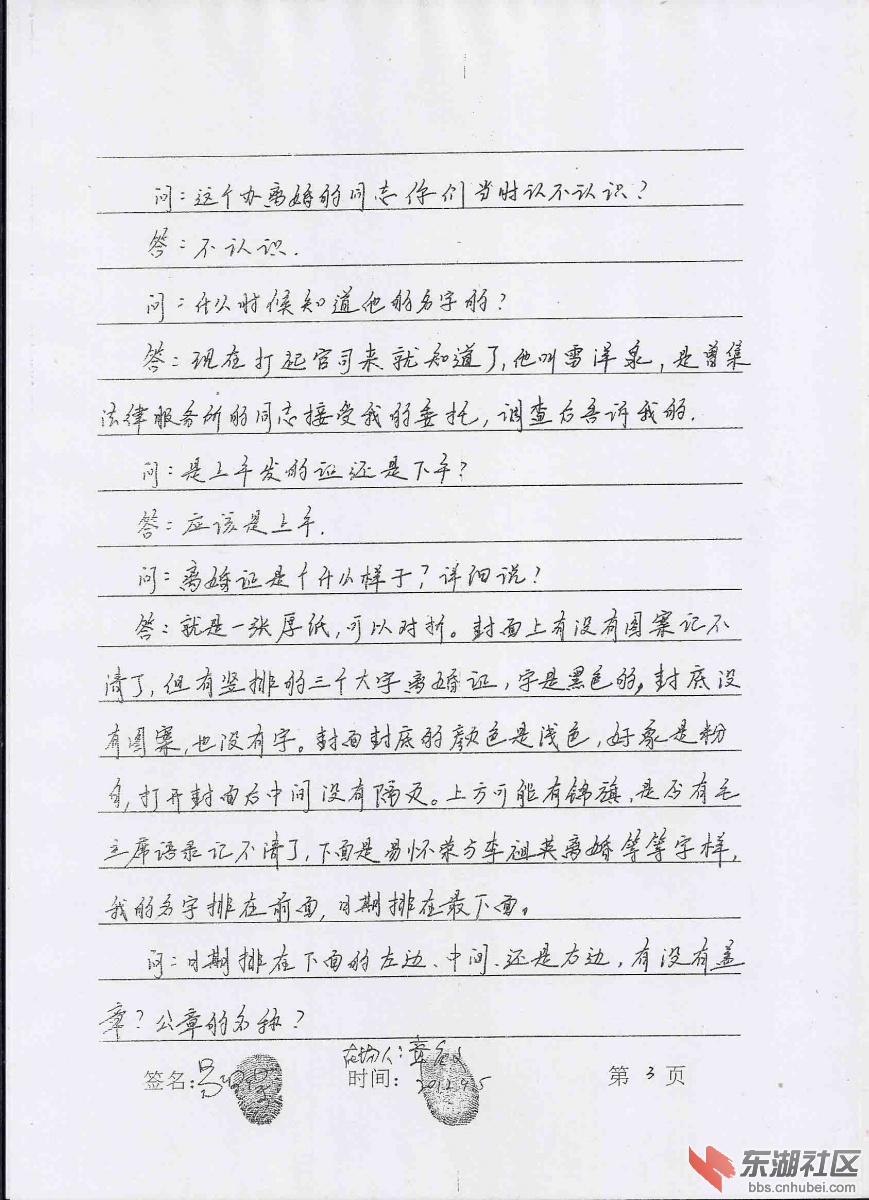 问:这个办离婚的同志你们当时认不认识?
答:不认识.
问:什么时候知道他的名字的?
答:现在打起官司来就知道了,他叫雷泽泉,是曾集
法律服务所的同志接受我的委托,调查后告诉我的.
问:是上午发的证还是下午?
答:应该是上午.
问:离婚证是个什么样子?详细说?
答:就是一张厚纸,可以对折。封面上有没有图案记不
清了,但有竖排的三个大字离婚证,字是黑色的,封底没
有图案,也没有字。封面封底的颜色是浅色,好象是粉
色,打开封面后中间没有隔页。上方可能有锦旗,是否有毛
主席语录记不清了,下面是易怀荣与李祖英离婚等等字样,
我的名字排在前面,日期排在最下面。
问:日期排在下面的左边、中间、还是右边,有没有盖
章?公章的名称?
在场人:
签名: 时间: 2012.4.5 第 3 页
东湖社区
bbs.cnhubei.com